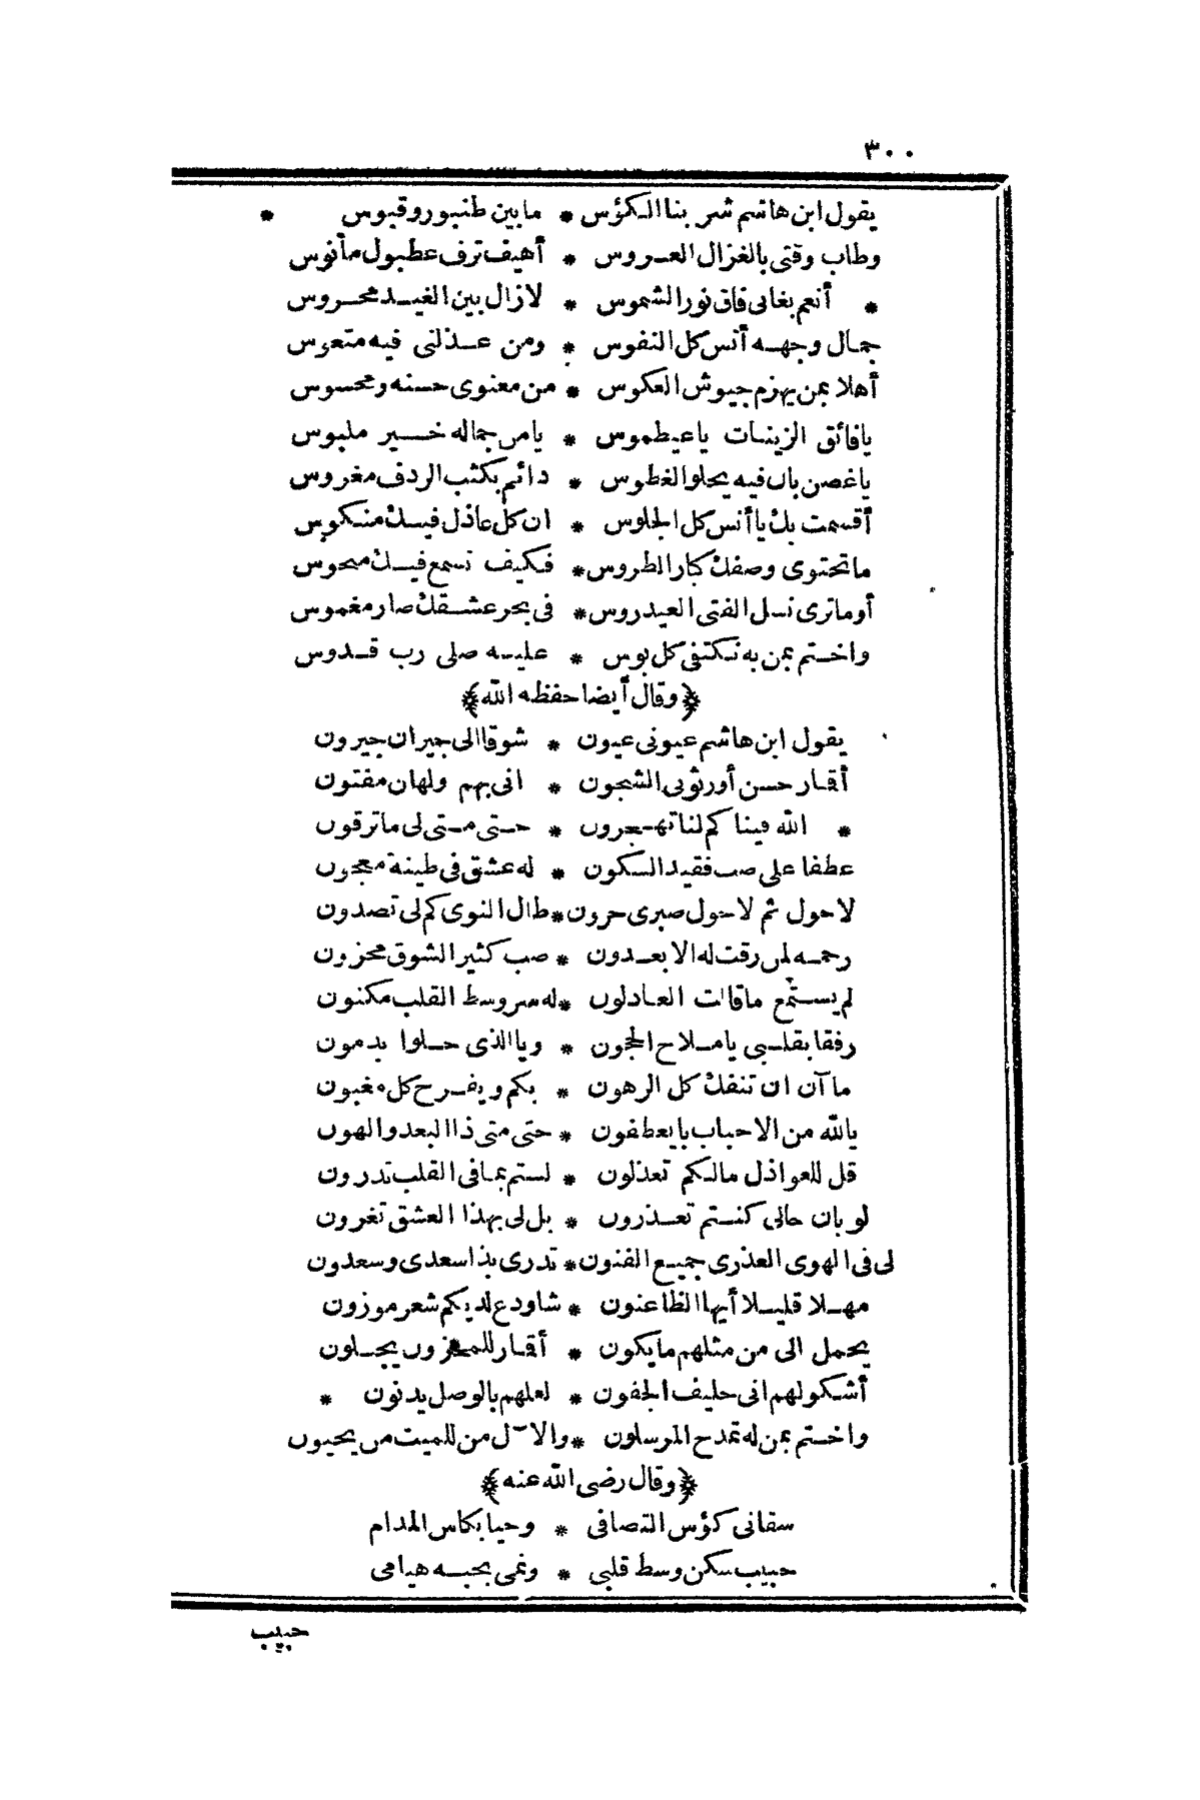 ٣٠٠
يقول ابن هاشم شر بنا الكؤس * ما بين طنبور وقبوس *
وطاب وقتى بالغزال العروس * أهيف ترف عطبول مأنوس
* أنعم بغانى فاق نور الشموس * لازال بين الغيد محروس
جمال وجهه أنس كل النفوس * ومن عذلنى فيه متعوس
أهلا بمن يهزم جيوش العكوس * من معنوى حسنه ومحسوس
يافائق الزينات ياعيطموس * يامن جماله خير ملبوس
ياغصن بان فيه يحلو الغطوس * دائم بكثب الردف مغروس
أقسمت بك يا أنس كل الجلوس * ان كل عاذل فيك منكوس
ما تحتوى وصفك كبار الطروس * فكيف نسمع فيك منحوس
أوما ترى نسل الفتى العيدروس * فى بحر عشقك صار مغموس
واختم بمن به نكتفى كل بوس * عليه صلى رب قدوس
﴿وقال أيضا حفظه الله﴾
يقول ابن هاشم عيونى عيون * شوقا الى جيران جيرون
أقمار حسن أورثونى الشجون * انى بهم ولهان مفتون
* الله فينا كم لنا تهجرون * حتى متى لى ما ترقون
عطفا على صب فقيد السكون * له عشق فى طينة معجون
لاحول ثم لاحول صبرى حرون * طال النوى كم لى تصدون
رحمه لمن رقت له الابعدون * صب كثير الشوق محزون
لم يستمع ما قالت العاذلون * له سر وسط القلب مكنون
رفقا بقلبى يا ملاح الحجون * ويا الذى حلوا بدمون
ما آن ان تنفك كل الرهون * بكم ويفرح كل مغبون
يالله من الاحباب با يعطفون * حتى متى ذا البعد والهون
قل للعواذل مالكم تعذلون * لستم بما فى القلب تدرون
لو بان حالى كنتم تعذرون * بل لى بهذا العشق تغرون
لى فى الهوى العذرى جميع الفنون * تدرى بذا سعدى وسعدون
مهلا قليلا أيها الظاعنون * شاودع لديكم شعر موزون
يحمل الى من مثلهم ما يكون * أقمار للمحزون يجلون
أشكو لهم انى حليف الجفون * لعلهم بالوصل يدنون *
واختم بمن له تمدح المرسلون * والآل من للميت من يحيون
﴿وقال رضى الله عنه﴾
سقانى كؤس التصافى * وحيا بكاس المدام
حبيب سكن وسط قلبى * ونمى بحبه هيامى
حبيب